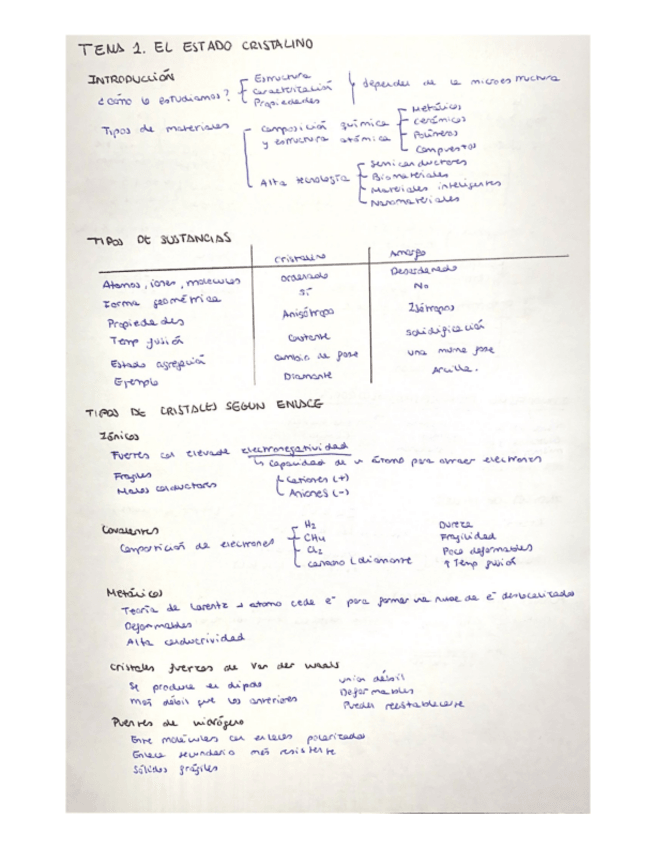 TEMA 1. EL ESTADO CRISTALINO
INTRODUCCIÓN
¿Cómo lo estudiamos? Estructura
Caracterización
Propiedades
depender de la microestructura
Tipos de materiales
Composición química y estructura atómica
Metálicos
Cerámicos
Polímeros
Compuestos
Alta tecnología
Semiconductores
Biomateriales
Materiales inteligentes
Nanomateriales
TIPOS DE SUSTANCIAS
Cristalino Amorfo
Atomos, iones, moléculas Ordenado Desordenado
Forma geométrica Sí No
Propiedades Anisótropo Isótropos
Temp fusión Constante solidificación
Estado agregación Cambio de fase una misma fase
Ejemplo Diamante Arcilla.
TIPOS DE CRISTALES SEGUN ENLACE
Iónicos
Fuertes con elevada electronegatividad
↳ Capacidad de un átomo para atraer electrones
Frágiles
Malos conductores
Cationes (+)
Aniones (-)
Covalentes
Compartición de electrones
H2
CH4
Cl2
carbono (diamante
Dureza
Fragilidad
Poco deformables
↑ Temp fusión
Metálicos
Teoría de Lorentz → atomo cede e- para formar una nube de e- deslocalizado
Deformables
Alta conductividad
Cristales fuerzas de Van der Waals
Se produce en dipolo unión débil
mas débil que los anteriores Deformables
Pueden reestablecerse
Puentes de hidrógeno
Entre moléculas con enlaces polarizados
Enlace secundario más resistente
Sólidos frágiles